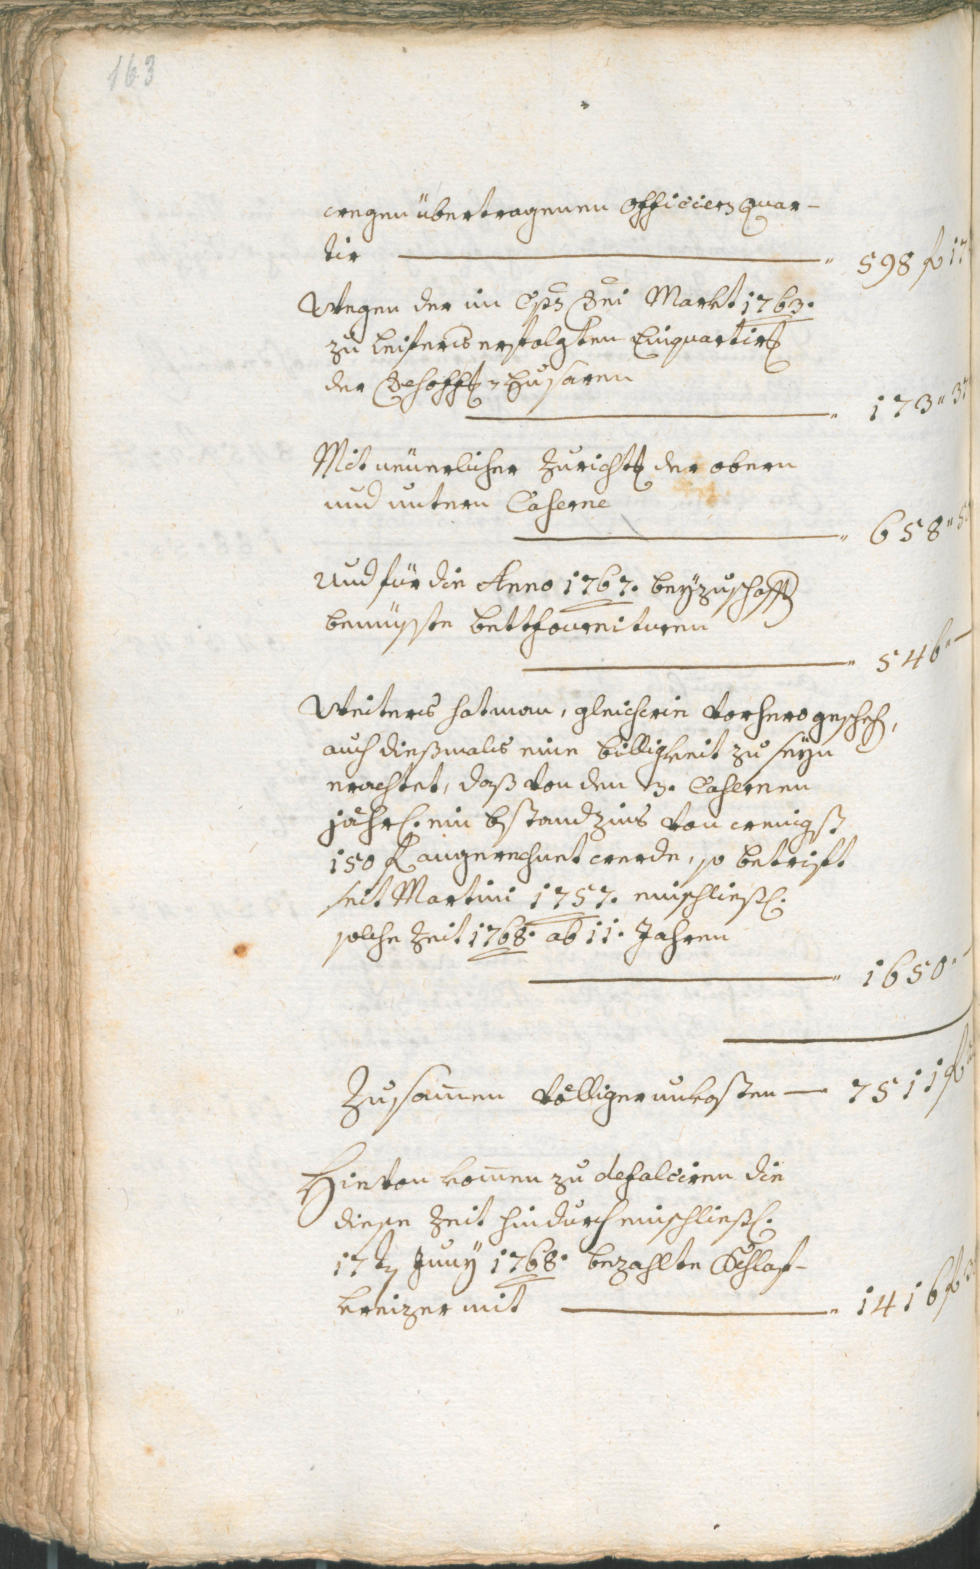 163
wegen übertragenen Officiers Quar-
tir 598 f 17
Wegen der im Cps Dni Markt 1763.
zu Leifers erfolgten Einquartirg
der Husaren
173 " 37
Mit neüerlicher Zurichtg der obern
und untern Caserne
658 "
Und für die Anno 1767. beyzuschaffen
bemüßte bettfournituren
546 " —
Weiters hat man, gleichwie vorhero geschehen,
auch dießmals eine billigkeit zu seyn
erachtet, daß von den 3. Casernen
jährl. ein bstandzins von wenigst
150 f angerechnet werde, so betrifft
seit Martini 1757. einschließl.
solche Zeit 1768. ab 11. Jahren
1650 " —
Zusam̄en völliger unkosten — 7511 f
Hievon kom̄en zu defalciren die
diese Zeit hindurch einschließl.
17 t. Juny 1768. bezahlte Schlaf-
kreizer mit 1416 f